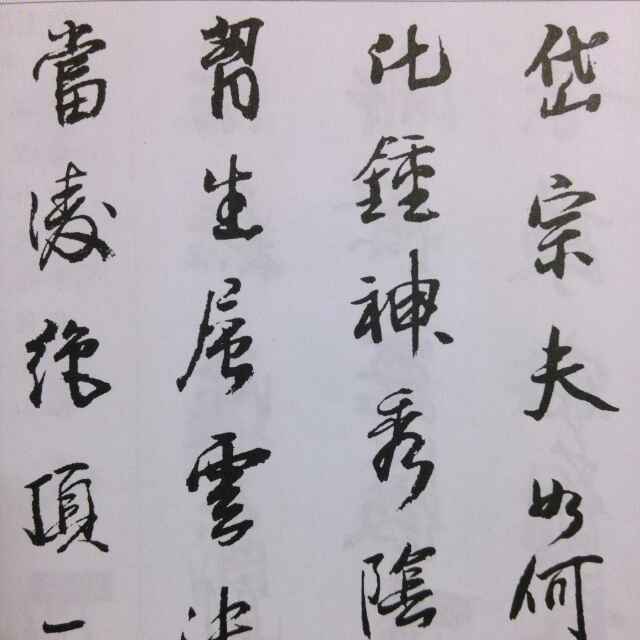 岱宗夫如何
化鍾神秀陰
胷生層雲
當凌絕頂一